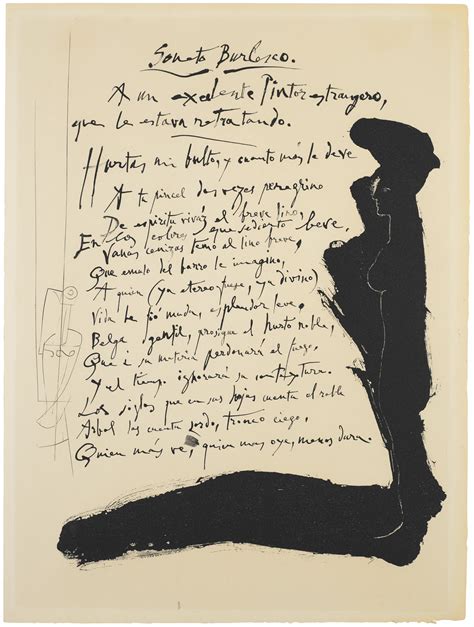 Soneto Burlesco.
A un exelente Pintor estrangero,
que le estava retratando.
Hurtas mi bulto, y cuanto más le deve
A tu pincel dos vezes peregrino
De espiritu vivaz el breve lino,
En los colores que sediento beve,
Vanas cenizas temo al lino breve,
Que emulo del barro le imagino,
A quien (ya etereo fuese, ya divino)
Vida le fió muda, esplendor leve.
Belga gentil, prosigue el hurto noble,
Que a su materia perdonará el fuego,
Y el tiempo ignorará su contextura.
Los siglos que en sus hojas cuenta el roble
Arbol los cuenta sordo, tronco ciego,
Quien más ve, quien mas oye, menos dura.